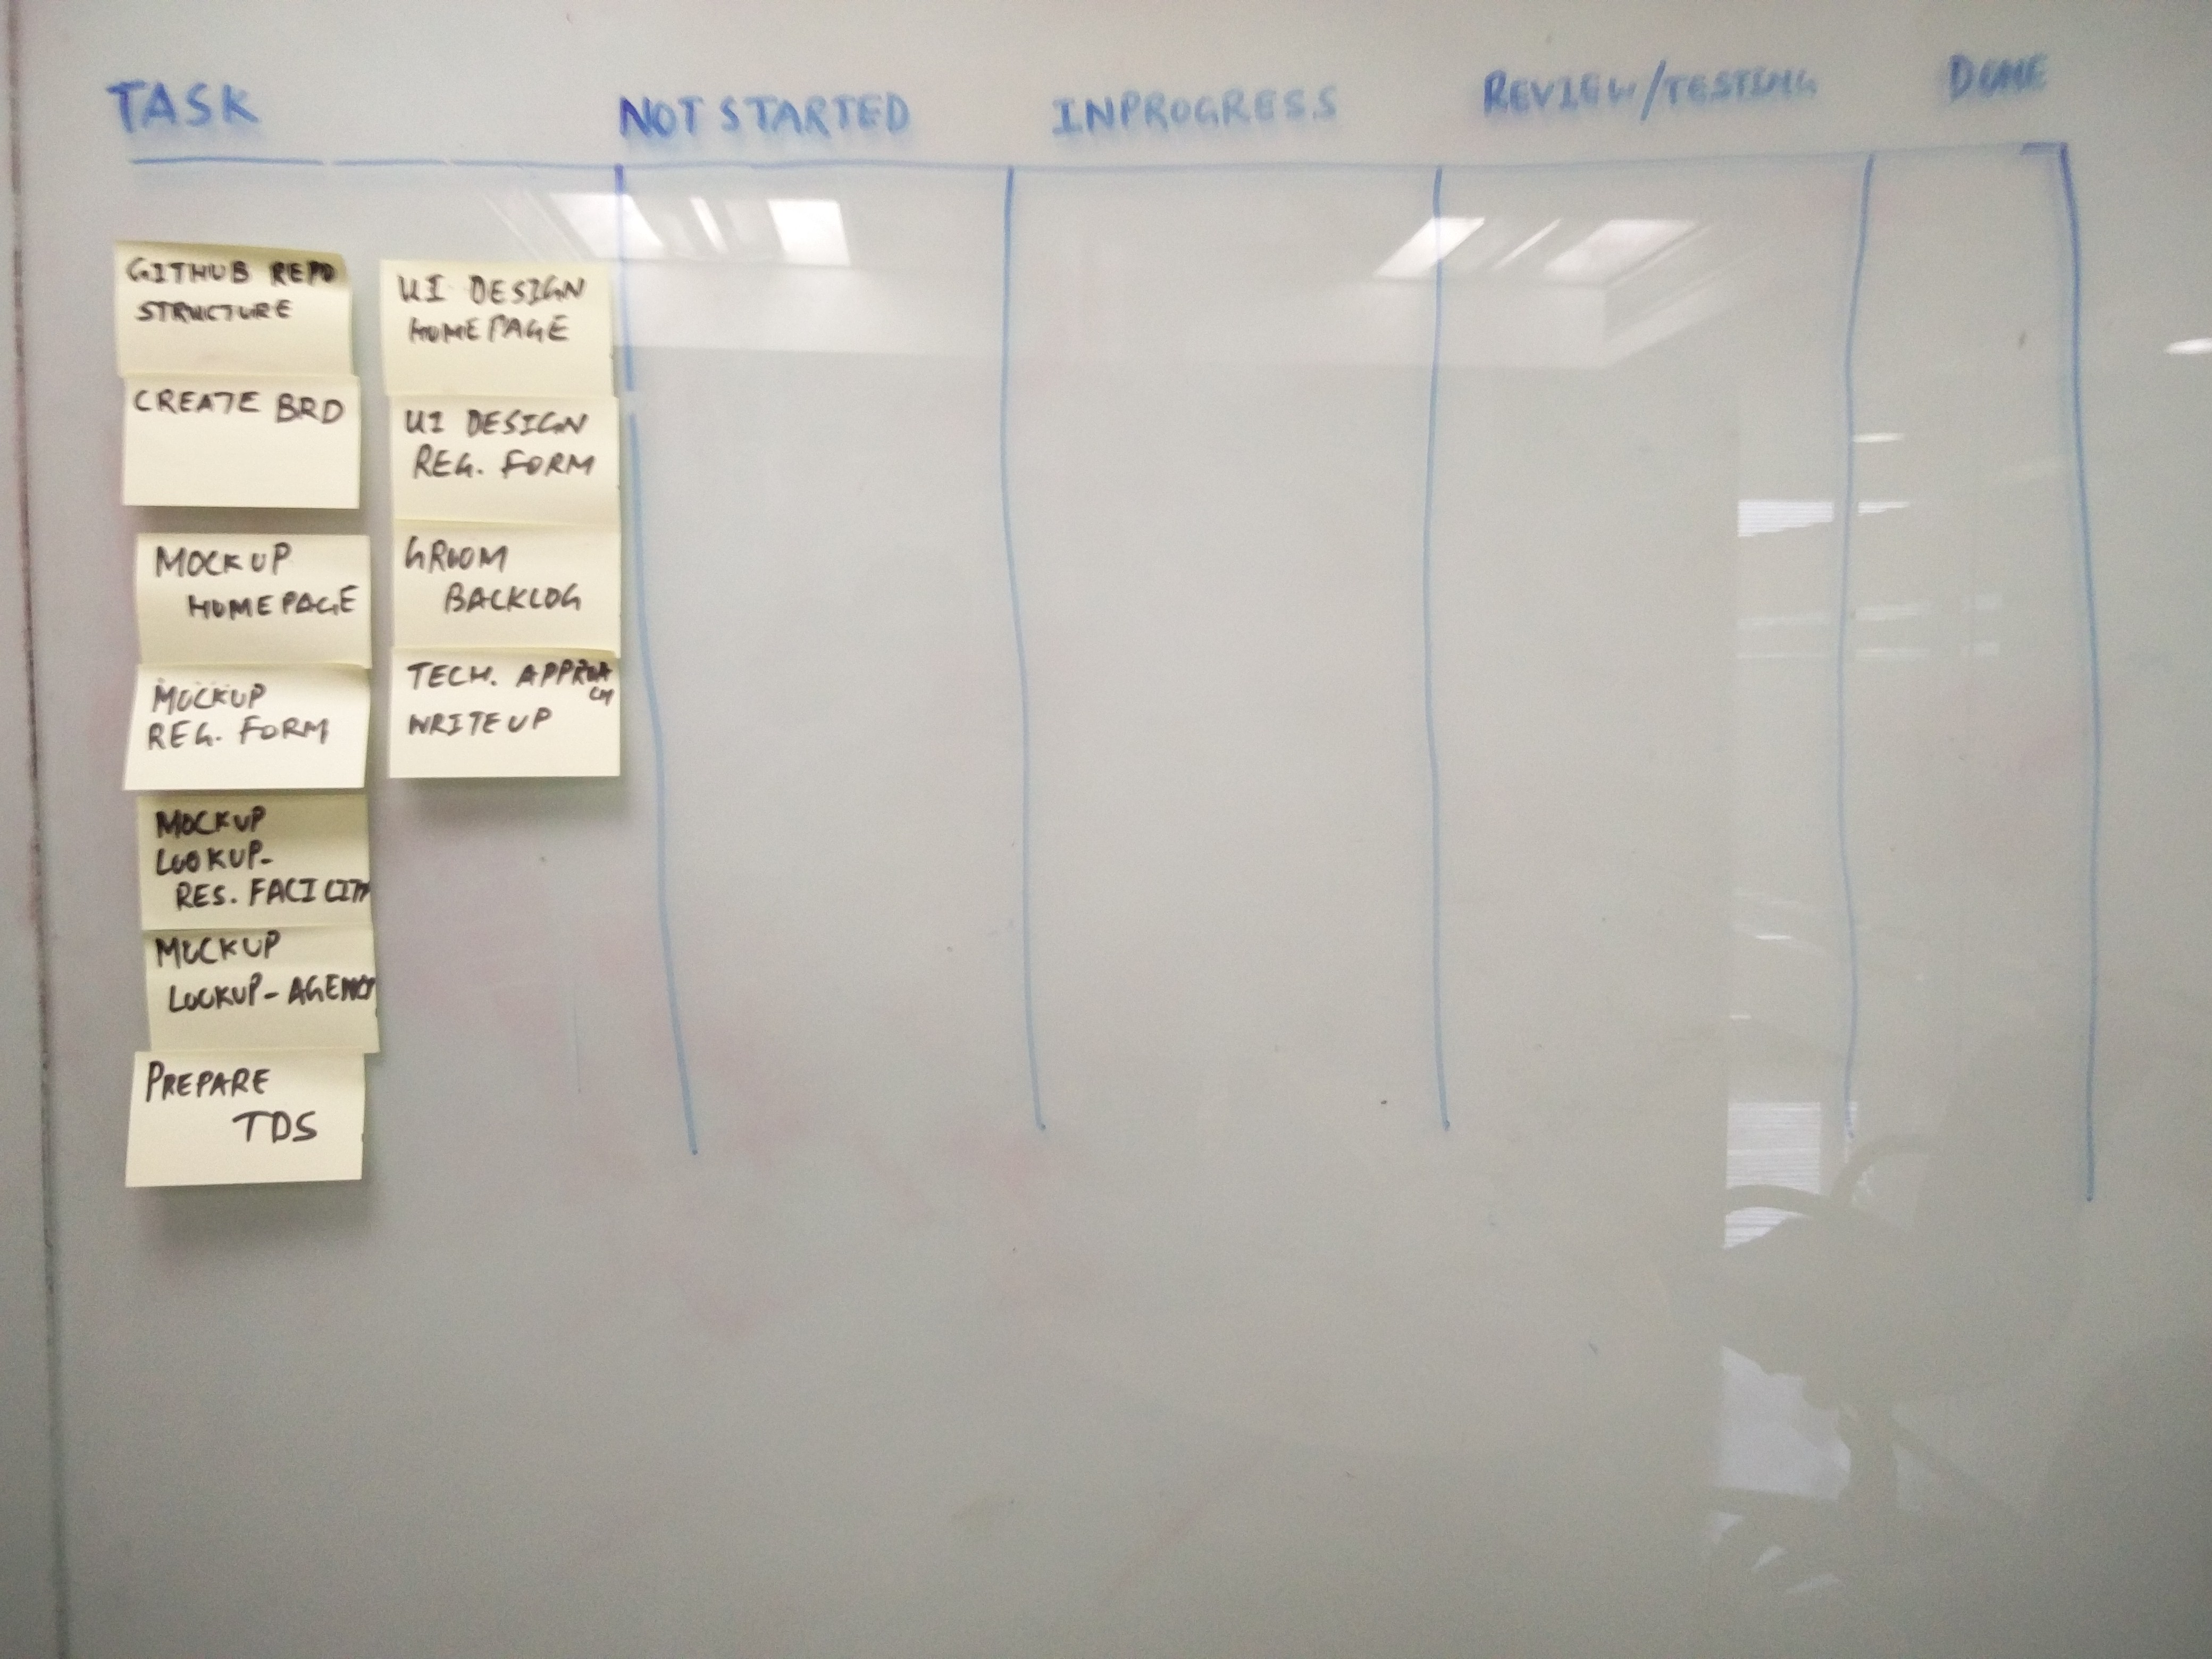 TASK
NOT STARTED
INPROGRESS
REVIEW/TESTING
DONE
GITHUB REPO
STRUCTURE
CREATE BRD
MOCKUP
HOMEPAGE
MOCKUP
REG. FORM
MOCKUP
LOOKUP-
RES. FACILITY
MOCKUP
LOOKUP-AGENCY
PREPARE
TDS
UI DESIGN
HOMEPAGE
UI DESIGN
REG. FORM
GROOM
BACKLOG
TECH. APPROA
CH
WRITEUP